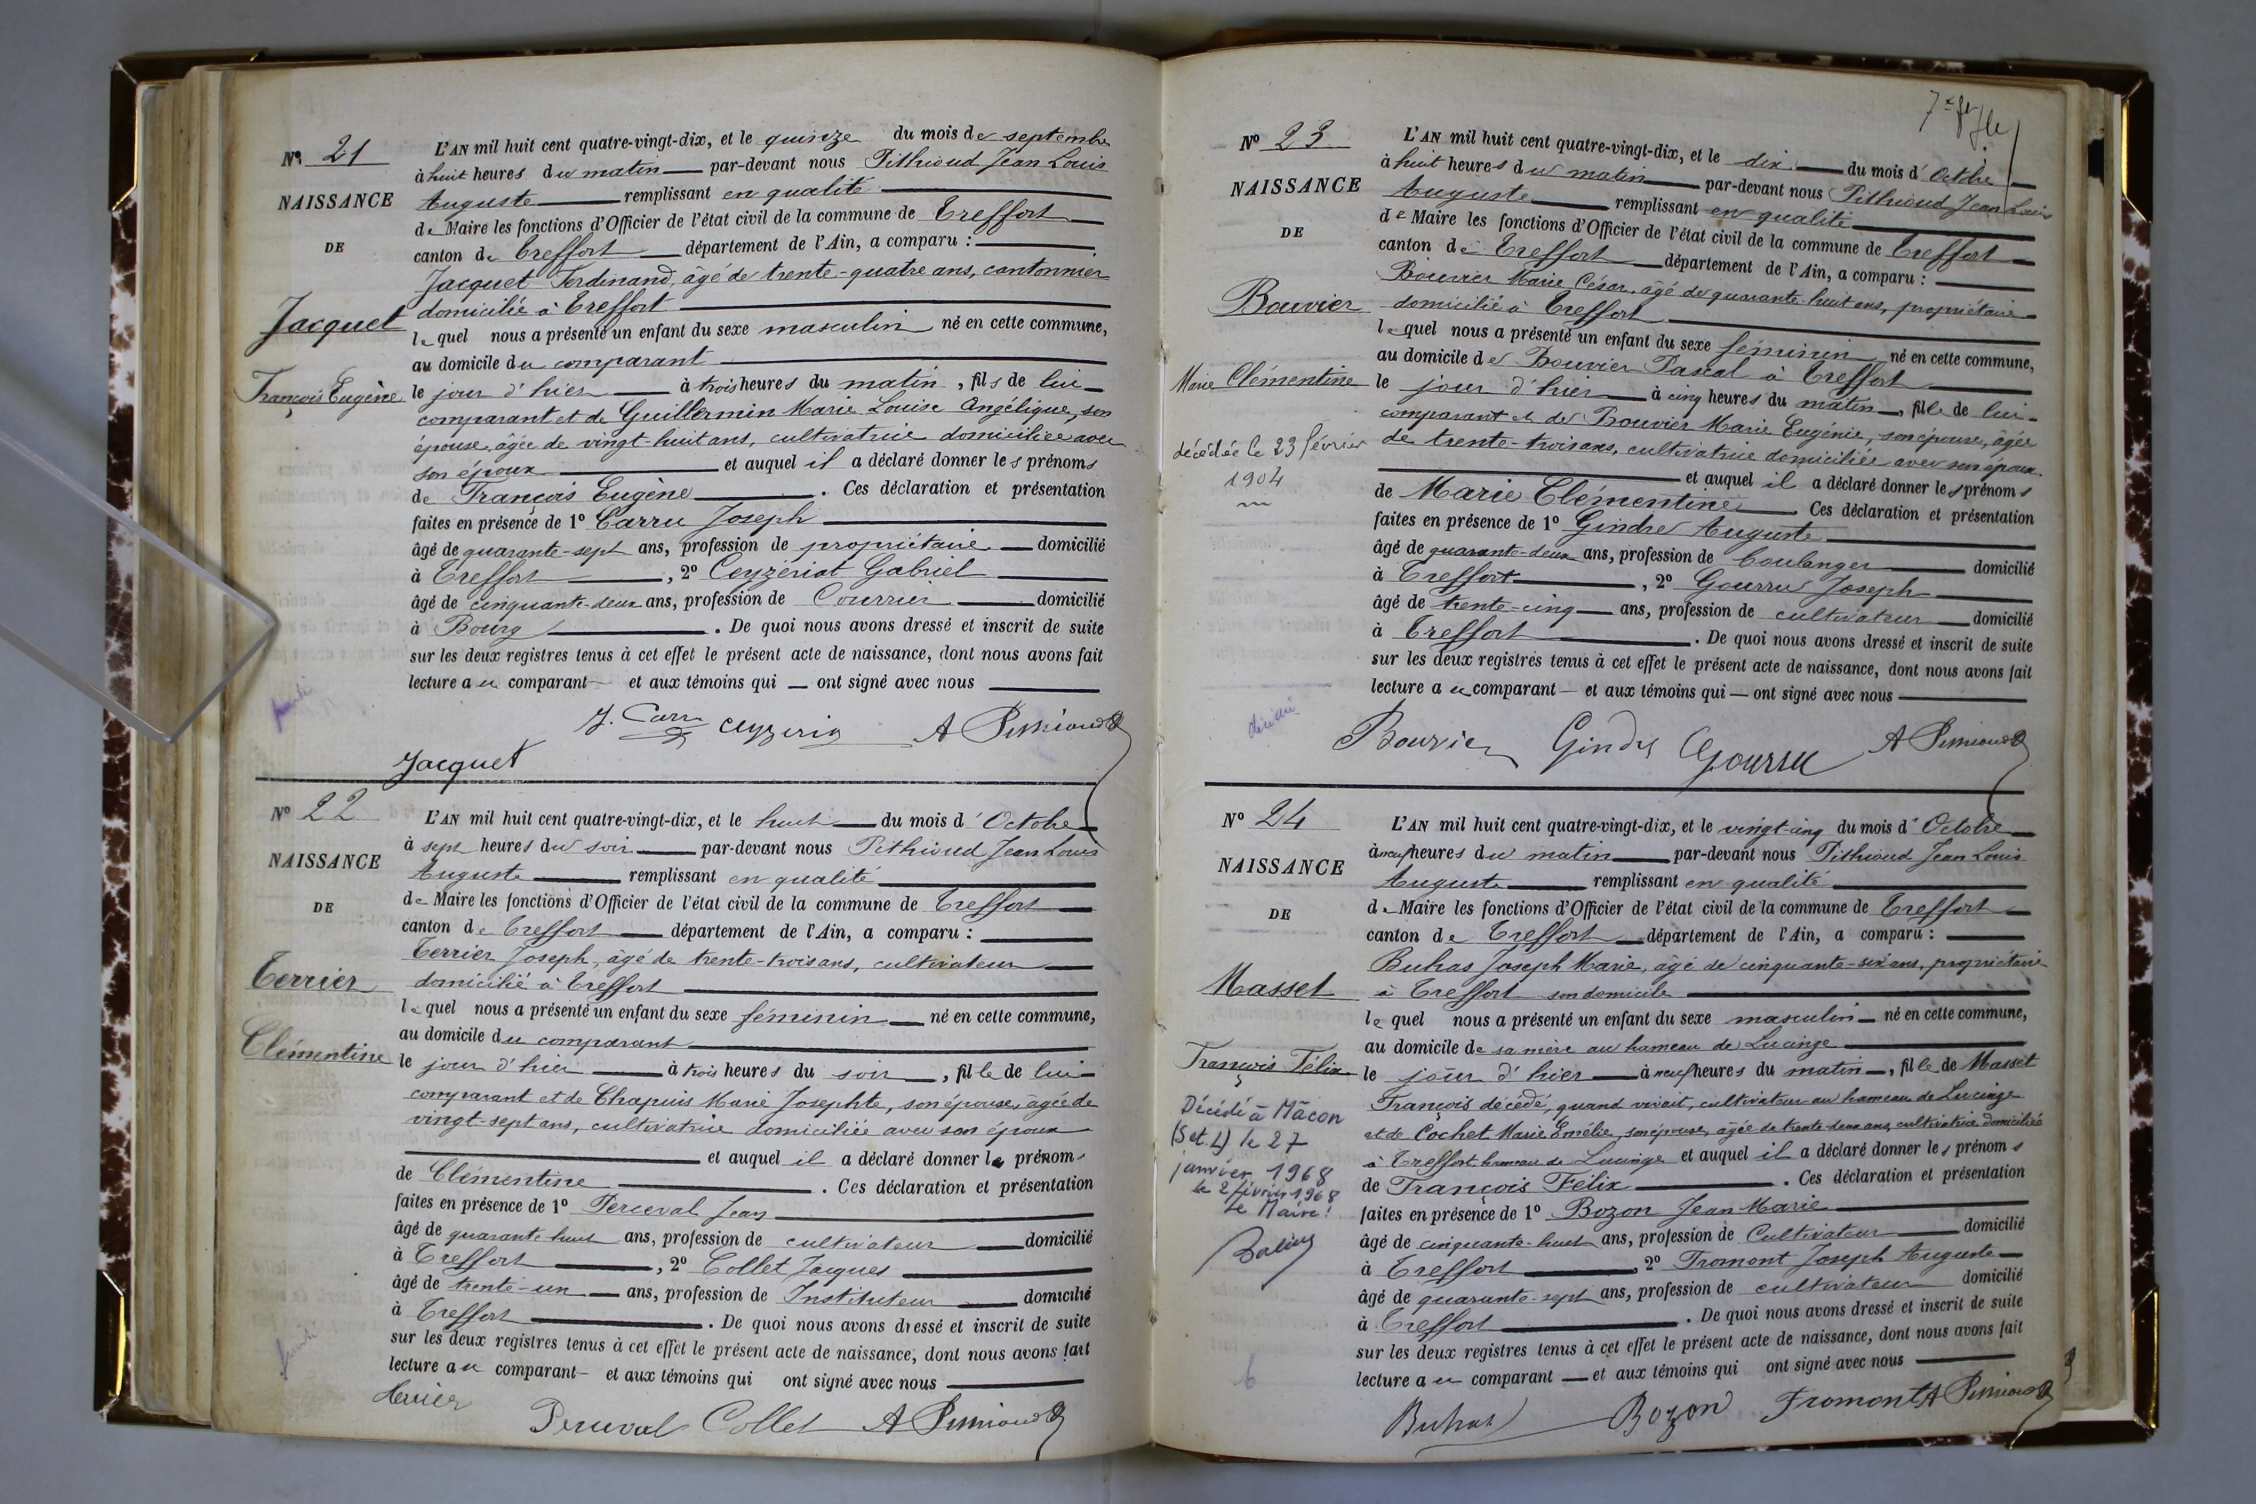 N° 21
NAISSANCE
DE
Jacquet
François Eugène
L'AN mil huit cent quatre-vingt-dix, et le quinze du mois de septembre
à huit heures du matin par-devant nous Pithioud Jean Louis
Auguste remplissant en qualité
de Maire les fonctions d'Officier de l'état civil de la commune de Treffort
canton de Treffort département de l'Ain, a comparu :
Jacquet Ferdinand, âgé de trente-quatre ans, cantonnier
domicilié à Treffort
lequel nous a présenté un enfant du sexe masculin né en cette commune,
au domicile du comparant
le jour d'hier à trois heures du matin, fils de lui
comparant et de Guillermin Marie Louise Angélique, son
épouse, âgée de vingt-huit ans, cultivatrice domiciliée avec
son époux et auquel il a déclaré donner les prénoms
de François Eugène. Ces déclaration et présentation
faites en présence de 1° Carru Joseph
âgé de quarante-sept ans, profession de propriétaire domicilié
à Treffort, 2° Ceyzériat Gabriel
âgé de cinquante-deux ans, profession de Courrier domicilié
à Bourg. De quoi nous avons dressé et inscrit de suite
sur les deux registres tenus à cet effet le présent acte de naissance, dont nous avons fait
lecture au comparant et aux témoins qui ont signé avec nous
J. Carru A Pithioud
Jacquet
N° 22
NAISSANCE
DE
Terrier
Clémentine
L'AN mil huit cent quatre-vingt-dix, et le huit du mois d'Octobre
à sept heures du soir par-devant nous Pithioud Jean Louis
Auguste remplissant en qualité
de Maire les fonctions d'Officier de l'état civil de la commune de Treffort
canton de Treffort département de l'Ain, a comparu :
Terrier Joseph, âgé de trente-trois ans, cultivateur
domicilié à Treffort
lequel nous a présenté un enfant du sexe féminin né en cette commune,
au domicile du comparant
le jour d'hier à trois heures du soir, fille de lui
comparant et de Chapuis Marie Josephte, son épouse, âgée de
vingt-sept ans, cultivatrice domiciliée avec son époux
et auquel il a déclaré donner le prénom
de Clémentine. Ces déclaration et présentation
faites en présence de 1° Perceval Jean
âgé de quarante huit ans, profession de cultivateur domicilié
à Treffort, 2° Collet Jacques
âgé de trente-un ans, profession de Instituteur domicilié
à Treffort. De quoi nous avons dressé et inscrit de suite
sur les deux registres tenus à cet effet le présent acte de naissance, dont nous avons fait
lecture au comparant et aux témoins qui ont signé avec nous
Terrier
Perceval Collet A Pithioud
N° 23
NAISSANCE
DE
Bouvier
Marie Clémentine
décédée le 23 février
1904
L'AN mil huit cent quatre-vingt-dix, et le dix du mois d'Octobre
à huit heures du matin par-devant nous Pithioud Jean Louis
Auguste remplissant en qualité
de Maire les fonctions d'Officier de l'état civil de la commune de Treffort
canton de Treffort département de l'Ain, a comparu :
Bouvier Marie César, âgé de quarante-huit ans, propriétaire
domicilié à Treffort
lequel nous a présenté un enfant du sexe féminin né en cette commune,
au domicile de Bouvier Pascal à Treffort
le jour d'hier à cinq heures du matin, fille de lui
comparant et de Bouvier Marie Eugénie, son épouse, âgée
de trente-trois ans, cultivatrice domiciliée avec son époux
et auquel il a déclaré donner les prénoms
de Marie Clémentine. Ces déclaration et présentation
faites en présence de 1° Gindre Auguste
âgé de quarante-deux ans, profession de boulanger domicilié
à Treffort, 2° Gourru Joseph
âgé de trente-cinq ans, profession de cultivateur domicilié
à Treffort. De quoi nous avons dressé et inscrit de suite
sur les deux registres tenus à cet effet le présent acte de naissance, dont nous avons fait
lecture au comparant et aux témoins qui ont signé avec nous
Bouvier Gindre Gourru A Pithioud
N° 24
NAISSANCE
DE
Masset
François Félix
Décédé à Mâcon
(S et L) le 27
janvier 1968
le 2 février 1968
Le Maire :
L'AN mil huit cent quatre-vingt-dix, et le vingt-cinq du mois d'Octobre
à neuf heures du matin par-devant nous Pithioud Jean Louis
Auguste remplissant en qualité
de Maire les fonctions d'Officier de l'état civil de la commune de Treffort
canton de Treffort département de l'Ain, a comparu :
Buhas Joseph Marie, âgé de cinquante-six ans, propriétaire
à Treffort son domicile
lequel nous a présenté un enfant du sexe masculin né en cette commune,
au domicile de sa mère au hameau de Lucinge
le jour d'hier à neuf heures du matin, fils de Masset
François décédé, quand vivait, cultivateur au hameau de Lucinge
et de Cochet Marie Emélie, son épouse, âgée de trente-deux ans, cultivatrice domiciliée
à Treffort hameau de Lucinge et auquel il a déclaré donner les prénoms
de François Félix. Ces déclaration et présentation
faites en présence de 1° Bozon Jean Marie
âgé de cinquante-huit ans, profession de Cultivateur domicilié
à Treffort, 2° Fromont Joseph Auguste
âgé de quarante-sept ans, profession de cultivateur domicilié
à Treffort. De quoi nous avons dressé et inscrit de suite
sur les deux registres tenus à cet effet le présent acte de naissance, dont nous avons fait
lecture au comparant et aux témoins qui ont signé avec nous
Buhas Bozon Fromont A Pithioud